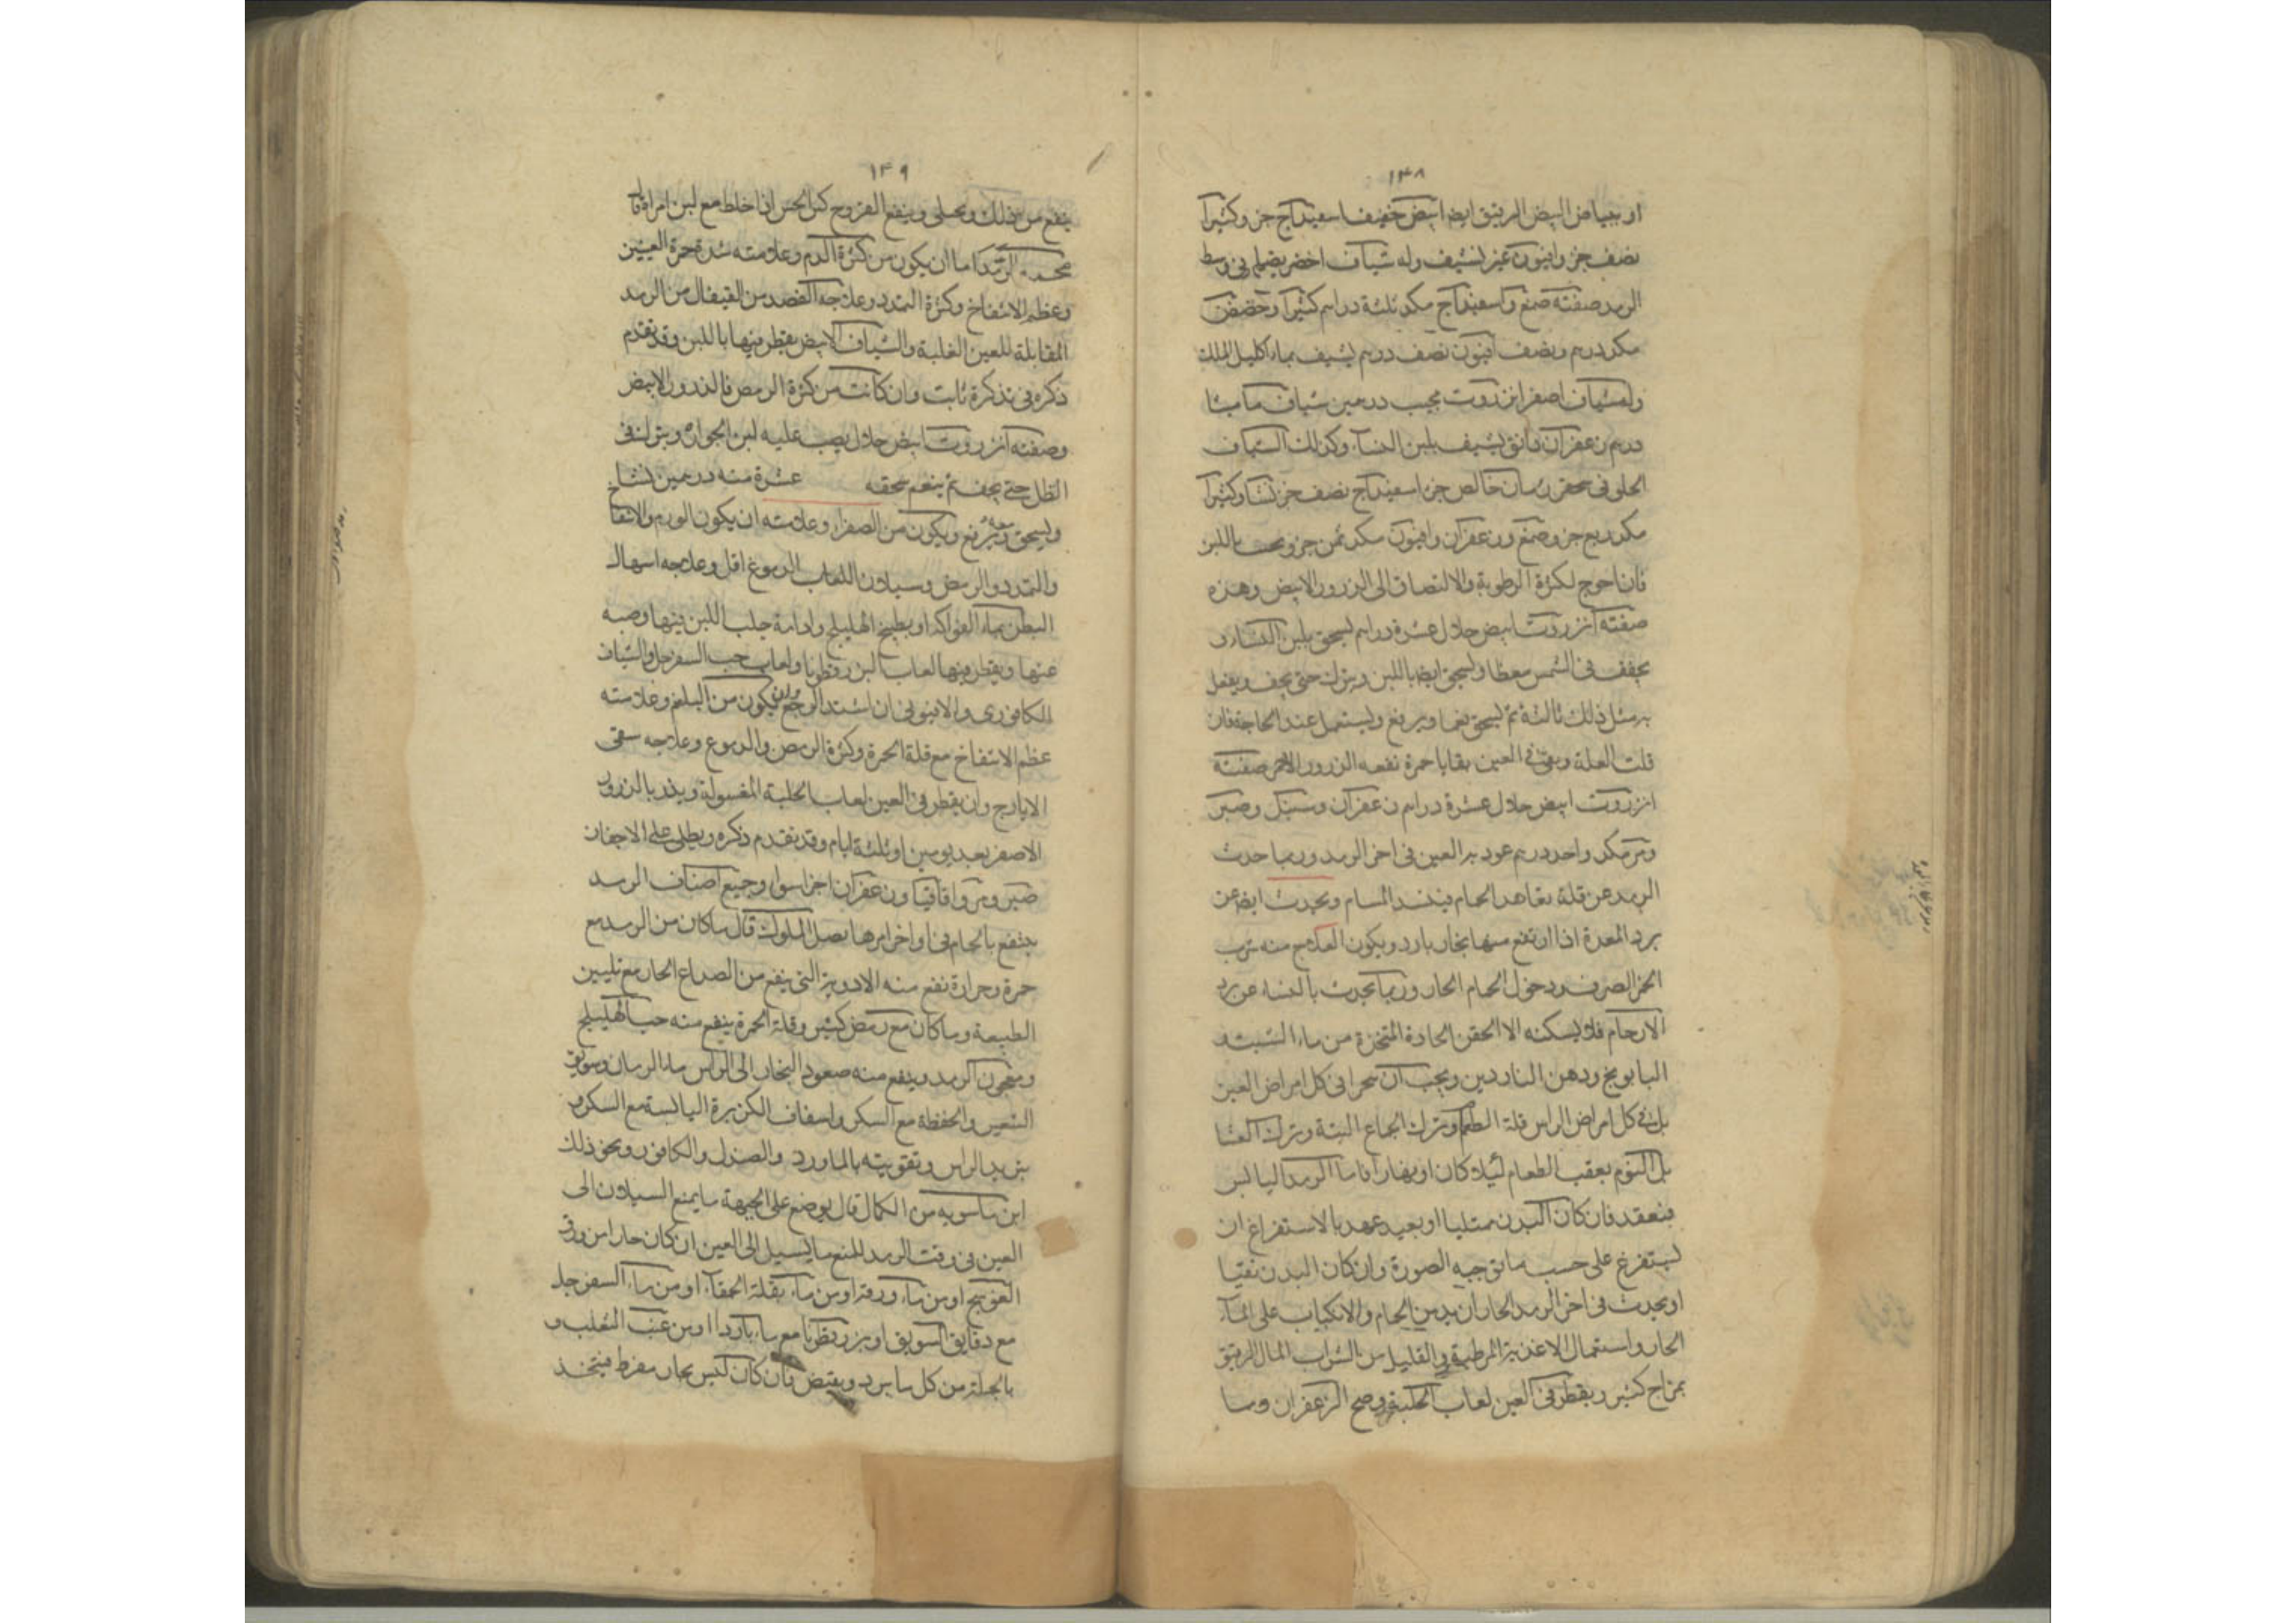 ١٤٨
او ببياض البيض الرقيق ايضا ابيض خفيف اسفيداج جزء وكثيرا
نصف جزء وافيون عشر يشيف وله شياف اخضر يصلح فى وسط
الرمد صفته صمغ واسفيداج مكد ثلثة دراهم كثيرا وحضض
مكد درهم ونصف افيون نصف درهم يشيف بماء اكليل الملك
وله شياف اصفر انزروت مجيب درهمين شياف ماميثا
درهم زعفران دانق يشيف بلبن النساء وكذلك الشياف
خالص جزء اسفيداج نصف جزء نشا وكثيرا
مكد ربع جزء وصمغ وزعفران وافيون مكد ثمن جزء باللبن
فان احوج لكثرة الرطوبة والالتصاق الى الذرور الابيض وهذه
صفته انزروت ابيض حلال عشرة دراهم يسحق بلبن النساء و
يجفف فى الشمس مغطا ويسحق ايضا باللبن ويترك حتى يجف ويفعل
به مثل ذلك ثالثة ثم يسحق نعما ويرفع ويستعمل عند الحاجة فان
قلت العلة وبقى فى العين بقايا حمرة نفعه الذرور الاحمر صفته
انزروت ابيض حلال عشرة دراهم زعفران وسنبل وصبر
ومر مكد واحد درهم عود به العين فى اخر الرمد وربما حدث
الرمد عن قلة تعاهد الحمام فينسد المسام ويحدث ايضا عن
برد المعدة اذا ارتفع منها بخار بارد ويكون العلاج منه شرب
الخمر الصرف ودخول الحمام الحار وربما يحدث بالنساء عن برد
الارحام فلا يسكنه الا الحقن الحادة المتخذة من ماء الشبث و
البابونج ودهن الناردين ويجب ان يتحرا فى كل امراض العين
بل فى كل امراض الراس قلة الطعام وترك الجماع البتة وترك العشا
بل النوم بعقب الطعام ليلا كان او نهارا فاما الرمد اليابس
فينعقد فان كان البدن ممتليا او بعيد عهد بالاستفراغ ان
يستفرغ على حسب ما توجبه الصورة وان كان البدن نقيا
او يحدث فى اخر الرمد الحار ان يدمن الحمام والانكباب على الماء
الحار واستعمال الاغذية المرطبة والقليل من الشراب الرقيق
بمزاج كثير ويقطر فى العين لعاب الحلبة الزعفران وما
١٤٩
ينفع من ذلك ويحلى وينفع القروح كل الحس اذا خلط مع لبن امراة
محمد الرمد اما ان يكون من كثرة الدم وعلامته شدة حمرة العينين
وعظم الانتفاخ وكثرة التمدد وعلاجه الفصد من القيفال من الرمد
المقابلة للعين الغلبة والشياف الابيض يقطر فيها باللبن وقد تقدم
ذكره فى تذكرة ثابت وان كانت من كثرة الرمص فالذرور الابيض
وصفته انزروت ابيض حلال يصب عليه لبن الجوارى ويترك فى
الظل حتى يجف ثم ينعم سحقه عشرة منه درهمين نشاستج
ويسحق معه ويرفع ويكون من الصفراء وعلامته ان يكون الورم والانتفاخ
والتمدد والرمص وسيلان اللعاب الدموع اقل وعلاجه اسهال
البطن بماء الفواكه او بطبيخ الهليلج وادامة حلب اللبن فيها وصبه
عنها ويقطر فيها لعاب البزرقطونا ولعاب حب السفرجل والشياف
الكافورى والافيونى ان اشتد الوجع وان يكون من البلغم وعلامته
عظم الانتفاخ مع قلة الحمرة وكثرة الرمص والدموع وعلاجه سقى
الايارج وان يقطر فى العين لعاب الحلبة المغسولة ويذر بالذرور
الاصفر بعد يومين او ثلثة ايام وقد تقدم ذكره ويطلى على الاجفان
صبر ومر واقاقيا وزعفران اجزا سوا وجميع اصناف الرمد
ينتفع بالحمام فى اواخر امرها بصل الملوك قال ما كان من الرمد مع
حمرة وحرارة نفع منه الادوية التى ينفع من الصداع الحار مع تليين
الطبيعة وما كان مع رمص كثير وقلة الحمرة ينفع منه حب الهليلج
ومعجون الرمد وينفع منه صعود البخار الى الراس ماء الرمان وسويق
الشعير والحنطة مع السكر واسفاف الكزبرة اليابسة مع السكر و
تبريد الراس وتقويته بالماورد والصندل والكافور ونحو ذلك
ابن ماسويه من الكمال قال يوضع على الجبهة ما يمنع السيلان الى
العين فى وقت الرمد للمنع ما يسيل الى العين ان كان حارا من ورق
العوسج او من ماء ورقه او من ماء بقلة الحمقاء او من ماء السفرجل
مع دقايق السويق او بزرقطونا مع ماء بارد او من عنب الثعلب و
بالجملة من كل ما يبرد ويقبض فان كان ليس بحار مفرط فيتخذ